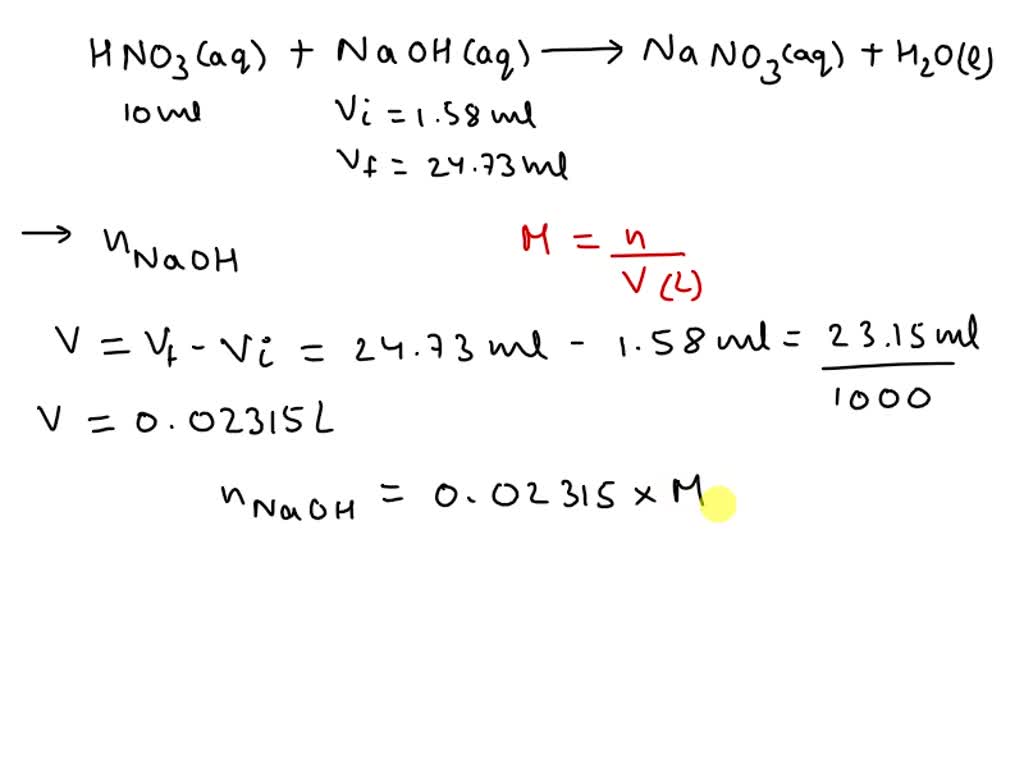 HNO3(aq) + NaOH(aq) ⟶ NaNO3(aq) + H2O(l)
10ml Vi = 1.58ml
Vf = 24.73ml
→ nNaOH M = n/V(L)
V = Vf - Vi = 24.73ml - 1.58ml = 23.15ml/1000
V = 0.02315L
nNaOH = 0.02315 × M